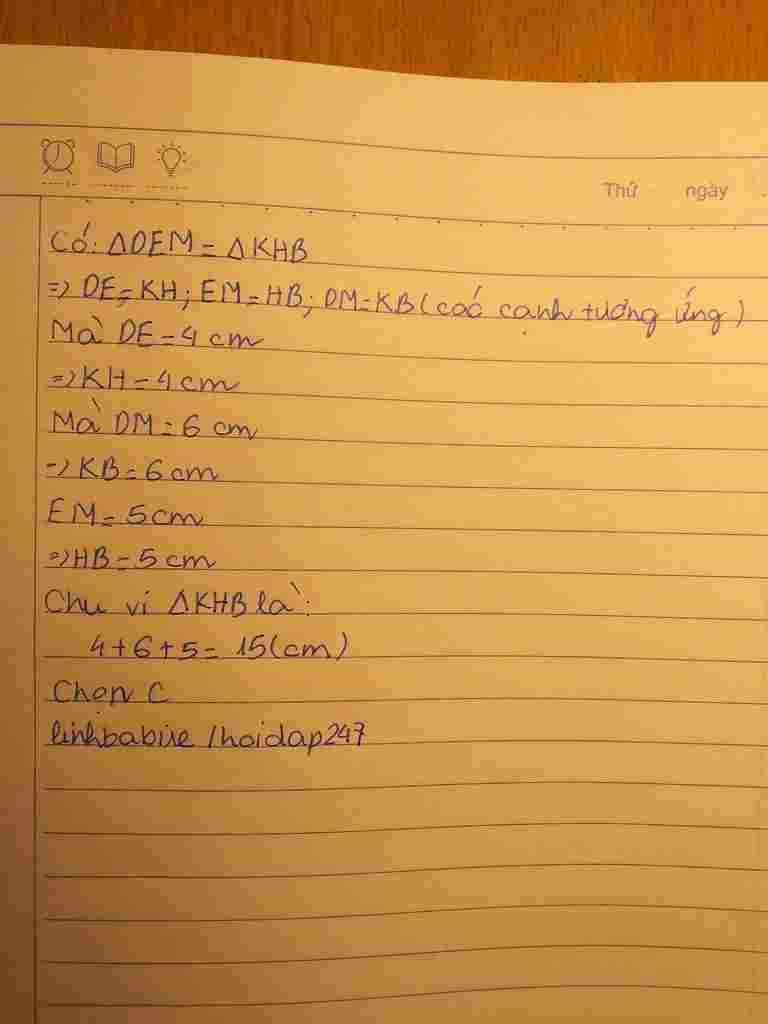 Thứ ngày
Có: ΔDEM = ΔKHB
=> DE = KH; EM = HB; DM = KB (các cạnh tương ứng)
Mà DE = 4 cm
=> KH = 4 cm
Mà DM = 6 cm
=> KB = 6 cm
EM = 5 cm
=> HB = 5 cm
Chu vi ΔKHB là:
4 + 6 + 5 = 15 (cm)
Chọn C
linhbabiie /hoidap247